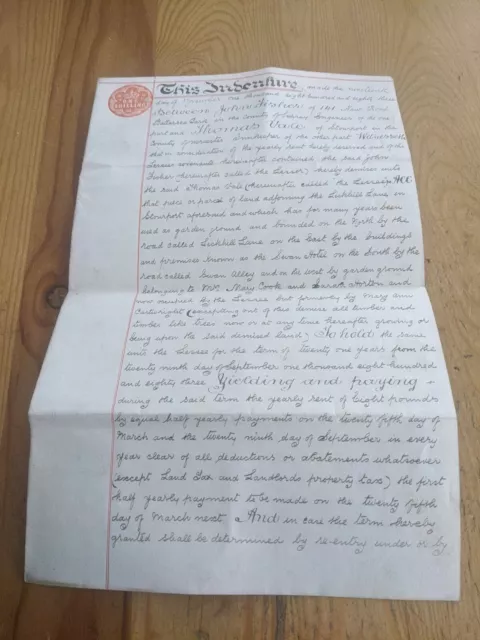 This Indenture made the nineteenth
day of one thousand eight hundred and eighty three
Between John Fisher of 141 New Road
Battersea Land in the County of Surrey Engineer of the one
part and Thomas Vale of Stourport in the
County of Worcester of the other part Witnesseth
that in consideration of the yearly rent hereby reserved and of the
Lessees covenants hereinafter contained the said John
Fisher (hereinafter called the Lessor) hereby demises unto
the said Thomas Vale (hereinafter called the Lessee) All
that piece or parcel of land adjoining the Lickhill Lane in
Stourport aforesaid and which has for many years been
used as garden ground and bounded on the North by the
road called Lickhill Lane on the East by the buildings
and premises known as the Swan Hotel on the South by the
road called Swan Alley and on the West by garden ground
belonging to Mrs Mary Cook and Sarah Horton and
now occupied by the Lessee but formerly by Mary Ann
Cartwright (excepting out of this demise all timber and
timber like trees now or at any time hereafter growing or
being upon the said demised land) To hold the same
unto the Lessee for the term of twenty one years from the
twenty ninth day of September one thousand eight hundred
and eighty three Yielding and paying
during the said term the yearly rent of Eight pounds
by equal half yearly payments on the twenty fifth day of
March and the twenty ninth day of September in every
year clear of all deductions or abatements whatsoever
(except Land Tax and Landlords property tax) the first
half yearly payment to be made on the twenty fifth
day of March next And in case the term hereby
granted shall be determined by re-entry under or by